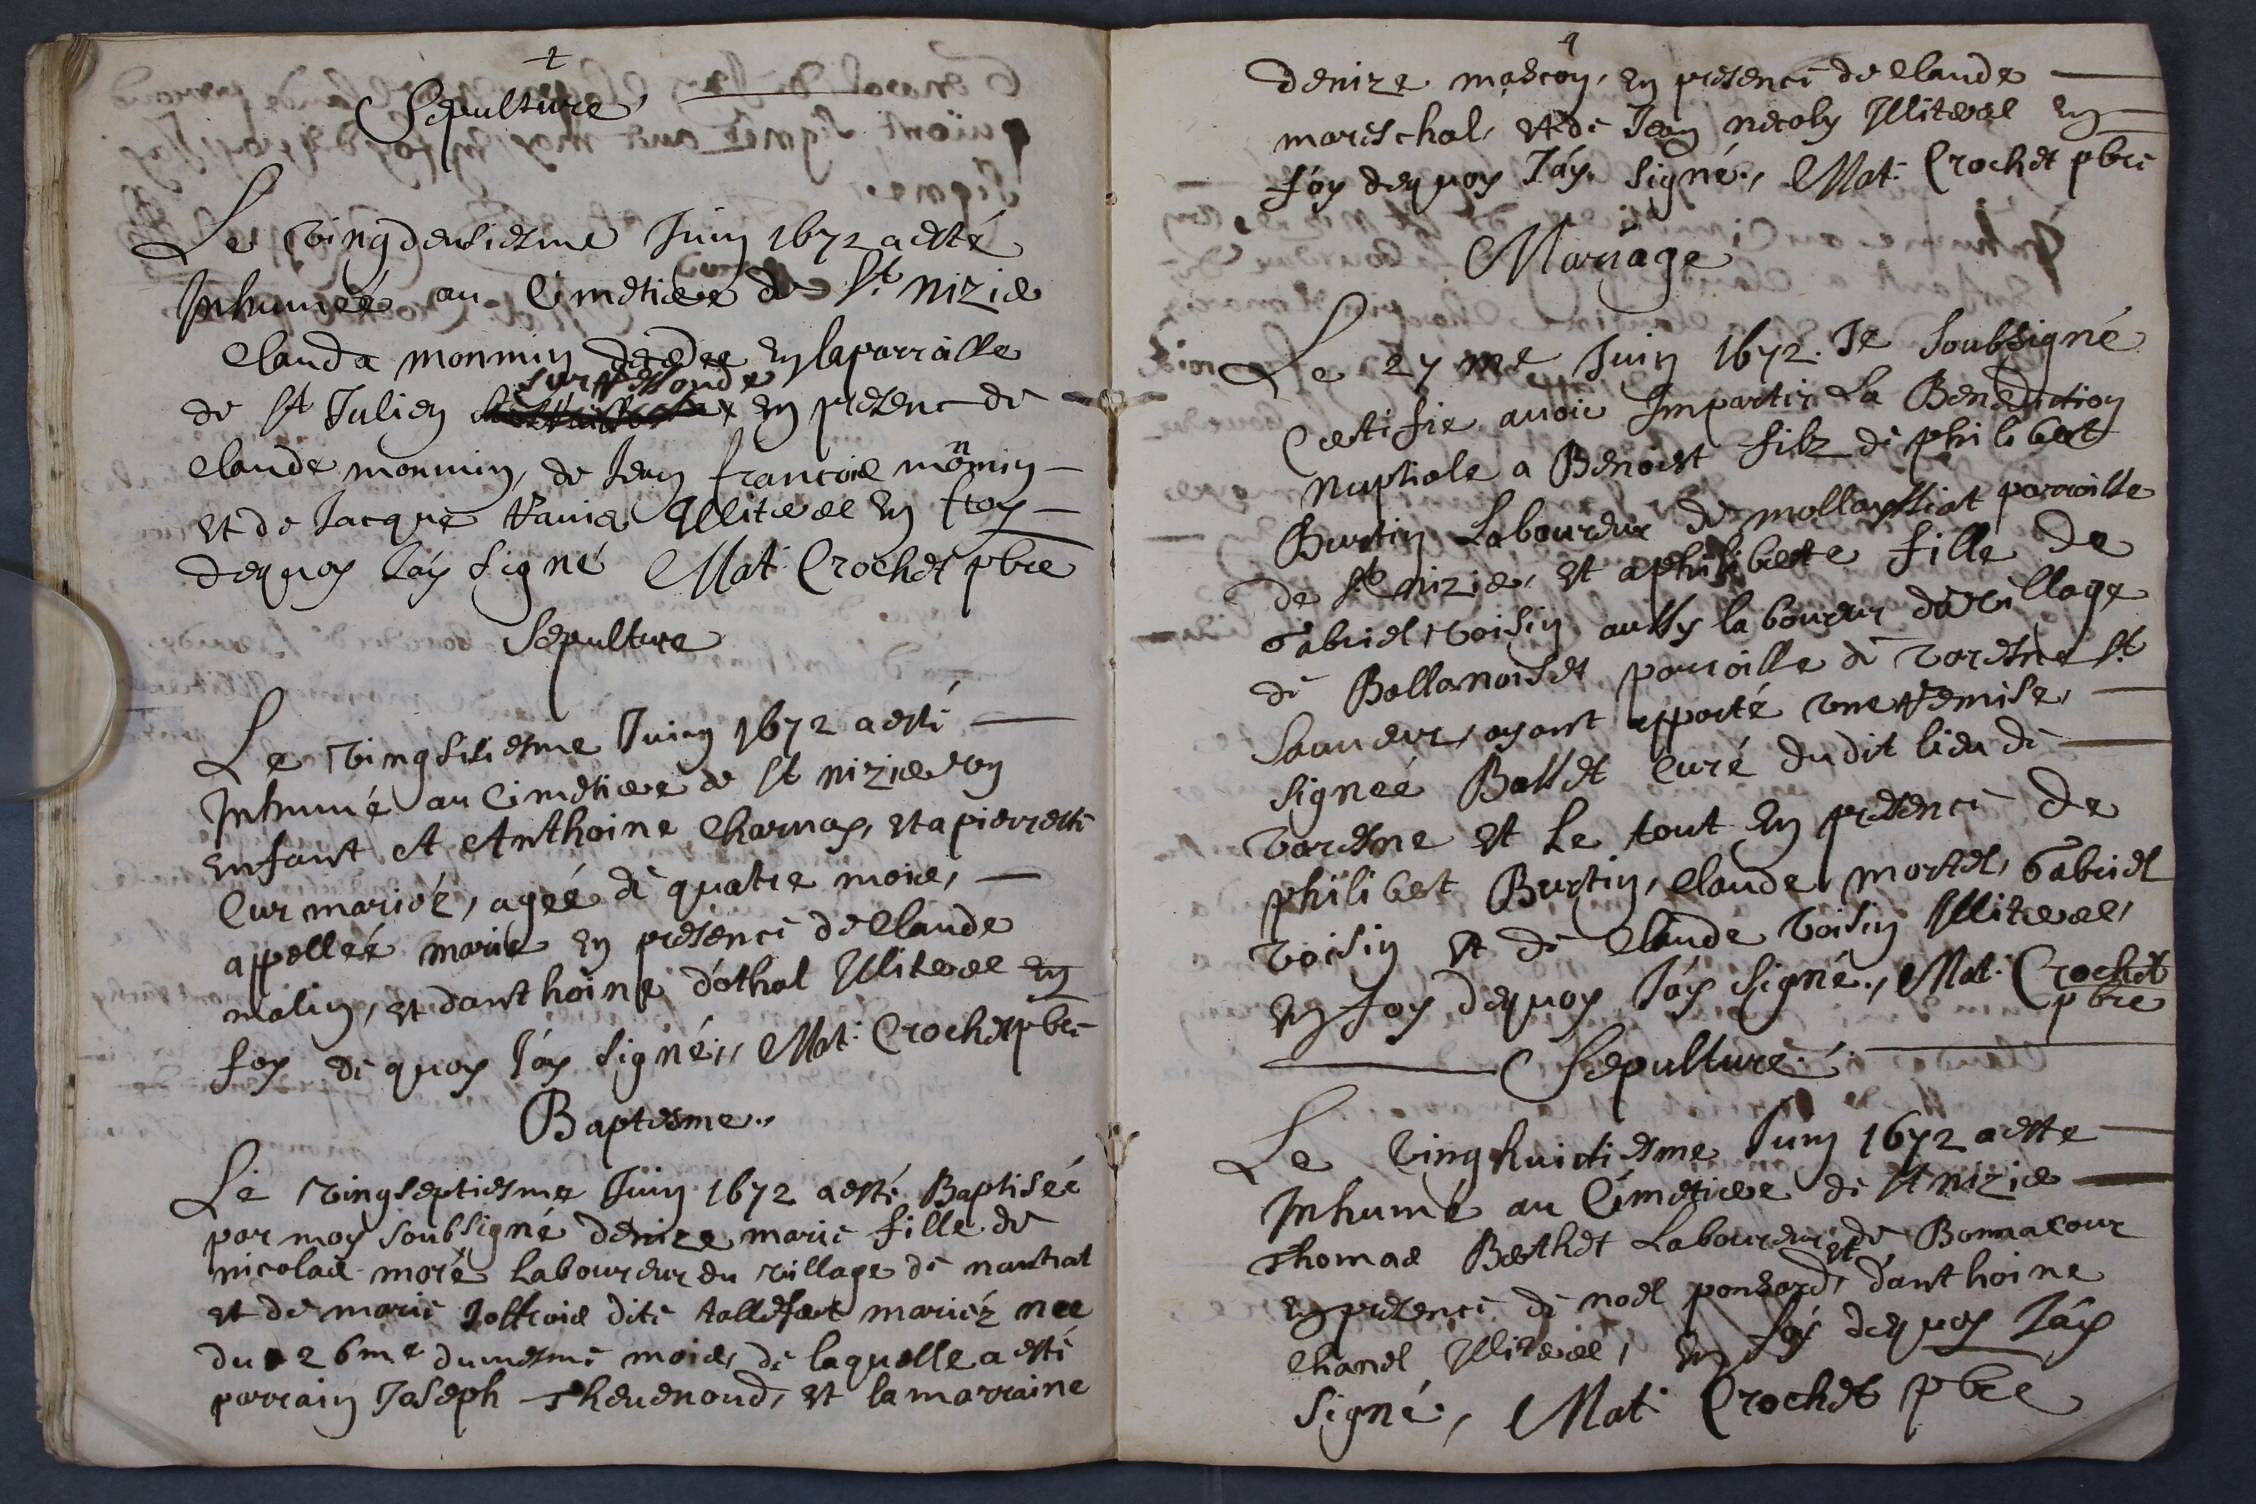 Sepulture
Le vingdeusiesme Juin 1672 a esté
Inhumée au Cimetiere de St nizie
Clauda monmin decedee en la parroisse
de St Julien sur Ressoude en presence de
Claude monmin, de Jean francois monmin
et de Jacque Illiteres en ffoy
dequoy Jáy signé Mat. Crochet pbre
Sepulture
Le vingsisiesme Juing 1672 a esté
Inhumé au Cimetiere de St nizie un
enfant A Anthoine Charnay, et a pierrette
Cur mariéz, agéé de quatre mois,
appellée marie en presence de Claude
malin, et danthoine dothal Illiteres en
foy de quoy Jáy signé., Mat. Crochet pbre
Baptesme.,
Le vingseptiesme Juin 1672 a esté Baptisée
par moy soubsigné denize marie fille de
nicolas moré laboureur du village de nantrat
et de marie Joffrois dite mariéz nee
du 26me du mesme mois, de laquelle a esté
parrain Joseph Theuenoud, et la marraine
denize mascon, en presence de Claude
mareschal, et de Jean nicoly Illiteres en
foy dequoy Jáy signé., Mat. Crochet pbre
Mariage
Le 27me Juin 1672. Je soubsigné
Certifie auoir Impartir La Benediction
nuptiale a Benoist filz de philibert
Burtin Laboureur de parroisse
de St nizie, et a philiberte fille de
Gabriel voisin aussy laboureur du village
de parroisse de varesne St
Sauueur, ayant apporté une remise,
signéé Ballet Curé dudit lieu de
varesne et Le tout en presence de
philibert Burtin, Claude mortel, Gabriel
voisin et de Claude voisin Illiteres,
en foy dequoy Jáy signé., Mat. Crochet
pbre
Sepulture.
Le vinghuictiesme Juin 1672 a este
Inhumé au Cimetiere de St nizie
Thomas Berthet Laboureur de Bonnacour
en presence de noel ponsard, et danthoine
Chanel Illiteres, en foy dequoy Jáy
signé, Mat. Crochet pbre